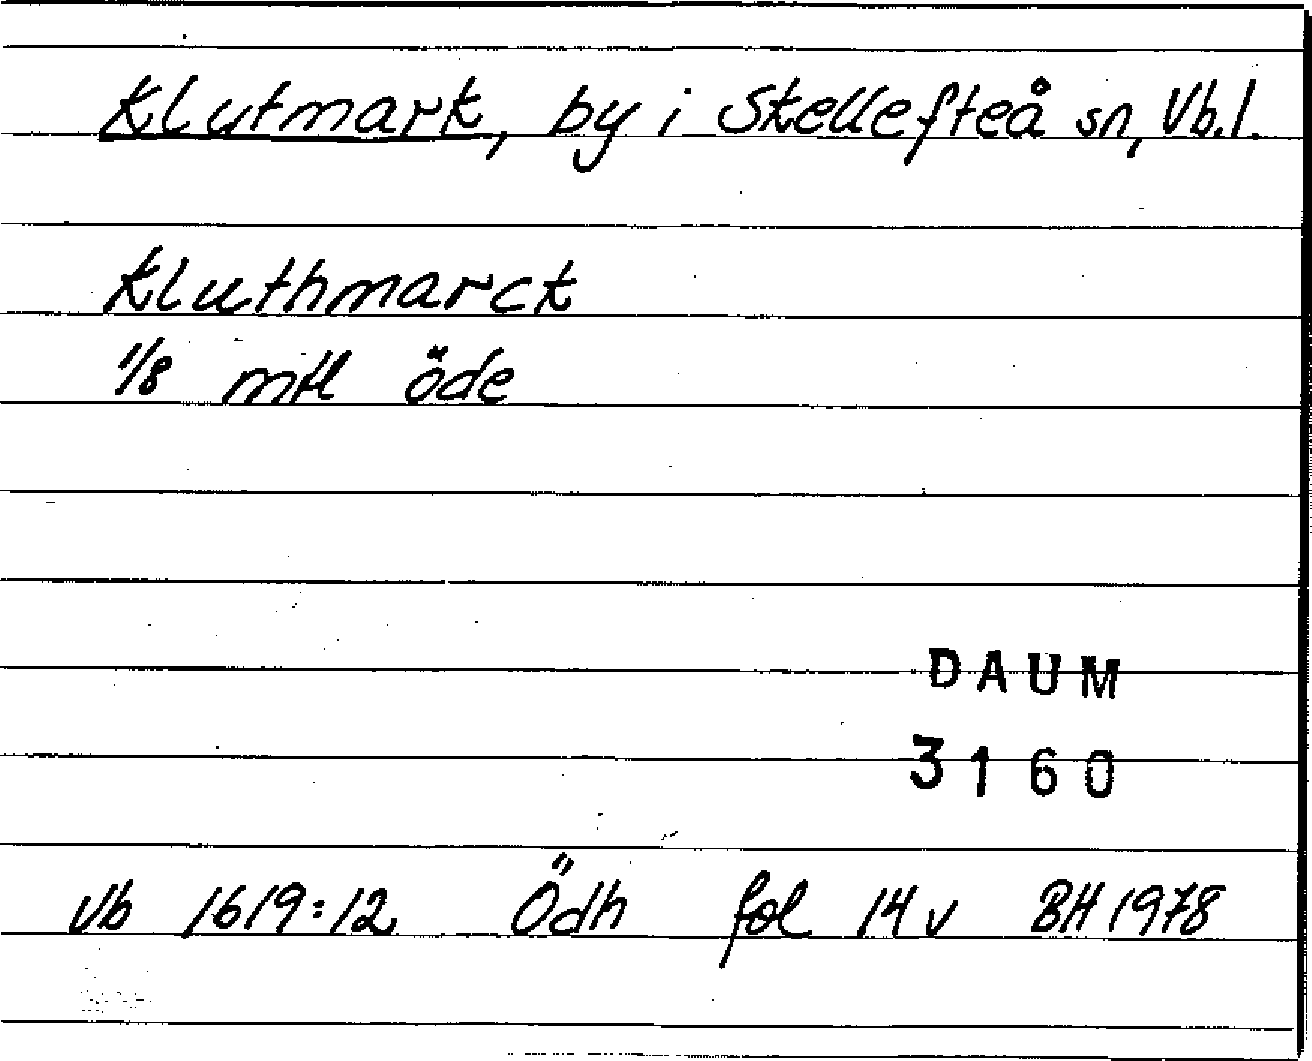 Klutmark, by i Skellefteå sn, Vb.l.
Kluthmarck
1/8 mtl öde
DAUM
3160
Vb 1619:12 Ödh fol 14 v BH 1978